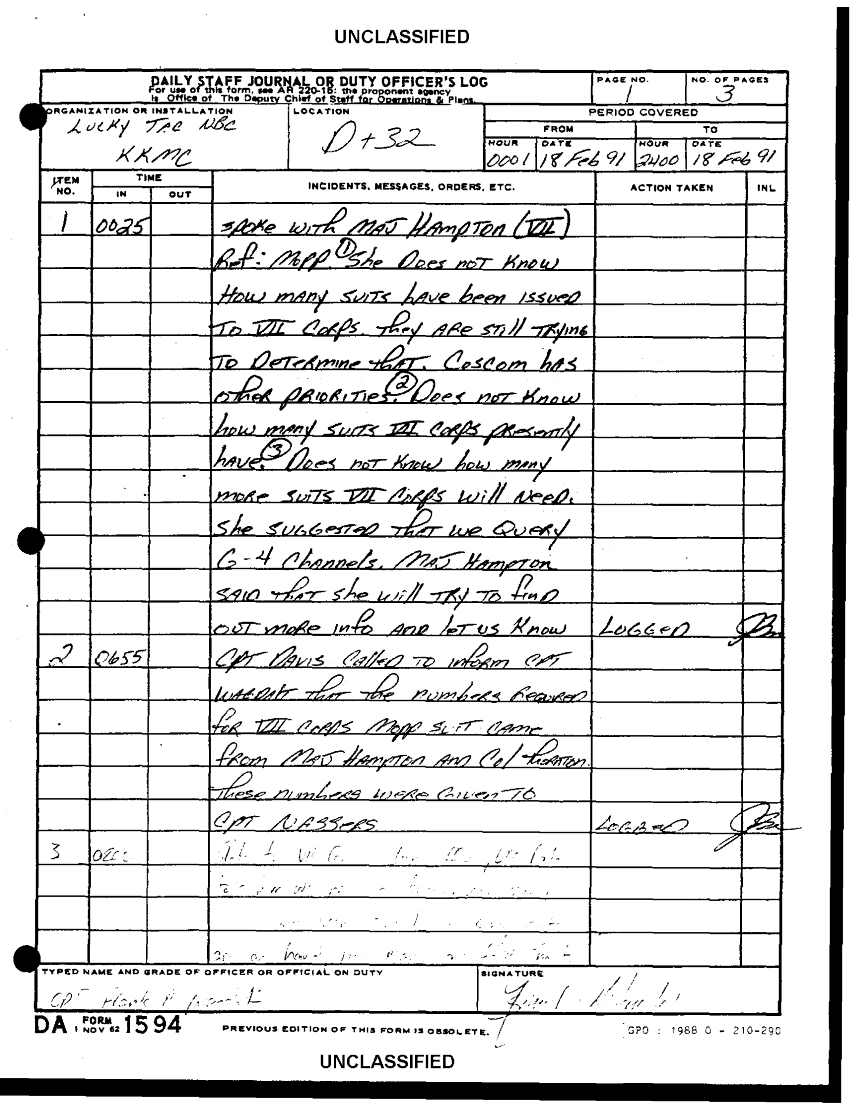 UNCLASSIFIED
DAILY STAFF JOURNAL OR DUTY OFFICER'S LOG
For use of this form, see AR 220-15; the proponent agency
is Office of The Deputy Chief of Staff for Operations & Plans.
PAGE NO.
1
NO. OF PAGES
3
ORGANIZATION OR INSTALLATION
Lucky TAC NBC
KKMC
LOCATION
D+32
PERIOD COVERED
FROM
TO
HOUR DATE HOUR DATE
0001 18 Feb 91 2400 18 Feb 91
ITEM NO.
TIME
IN OUT
INCIDENTS, MESSAGES, ORDERS, ETC.
ACTION TAKEN
INL
1 0025 spoke with MAJ HAMPTON (VII)
Ref: MOPP. ① She Does not Know
How many suits have been issued
To VII Corps. they are still trying
To Determine that. Coscom has
other priorities. ② Does not Know
how many suits VII Corps presently
have. ③ Does not Know how many
more suits VII Corps will need.
She suggested that we Query
G-4 Channels. MAJ Hampton
said that she will try to find
out more info and let us Know LOGGED
2 0655 CPT Davis Called to inform CPT
that the numbers Required
for VII Corps Mopp suit came
from MAJ Hampton and Col Thornton.
These numbers were Given To
CPT Nassers LOGGED
3
TYPED NAME AND GRADE OF OFFICER OR OFFICIAL ON DUTY
CPT Frank
SIGNATURE
DA FORM 1 NOV 62 1594
PREVIOUS EDITION OF THIS FORM IS OBSOLETE.
GPO : 1988 O - 210-290
UNCLASSIFIED